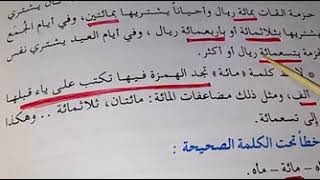 حزمة القات بمائة ريال وأحياناً يشتريها بمائتين، وفي أيام الجُمَع
يشتريها بثلاثمائة أو بأربعمائة ريال ، وفي أيام العيد يشتري نفس
حزمة بتسعمائة ريال أو أكثر.
كلمة «مائة» نجد الهمزة فيها تكتب على ياء قبلها
ألف، ومثل ذلك مضاعفات المائة: مائتان، ثلاثمائة ... وهكذا
إلى تسعمائة.
خطأ تحت الكلمة الصحيحة :
مائة - ماه.